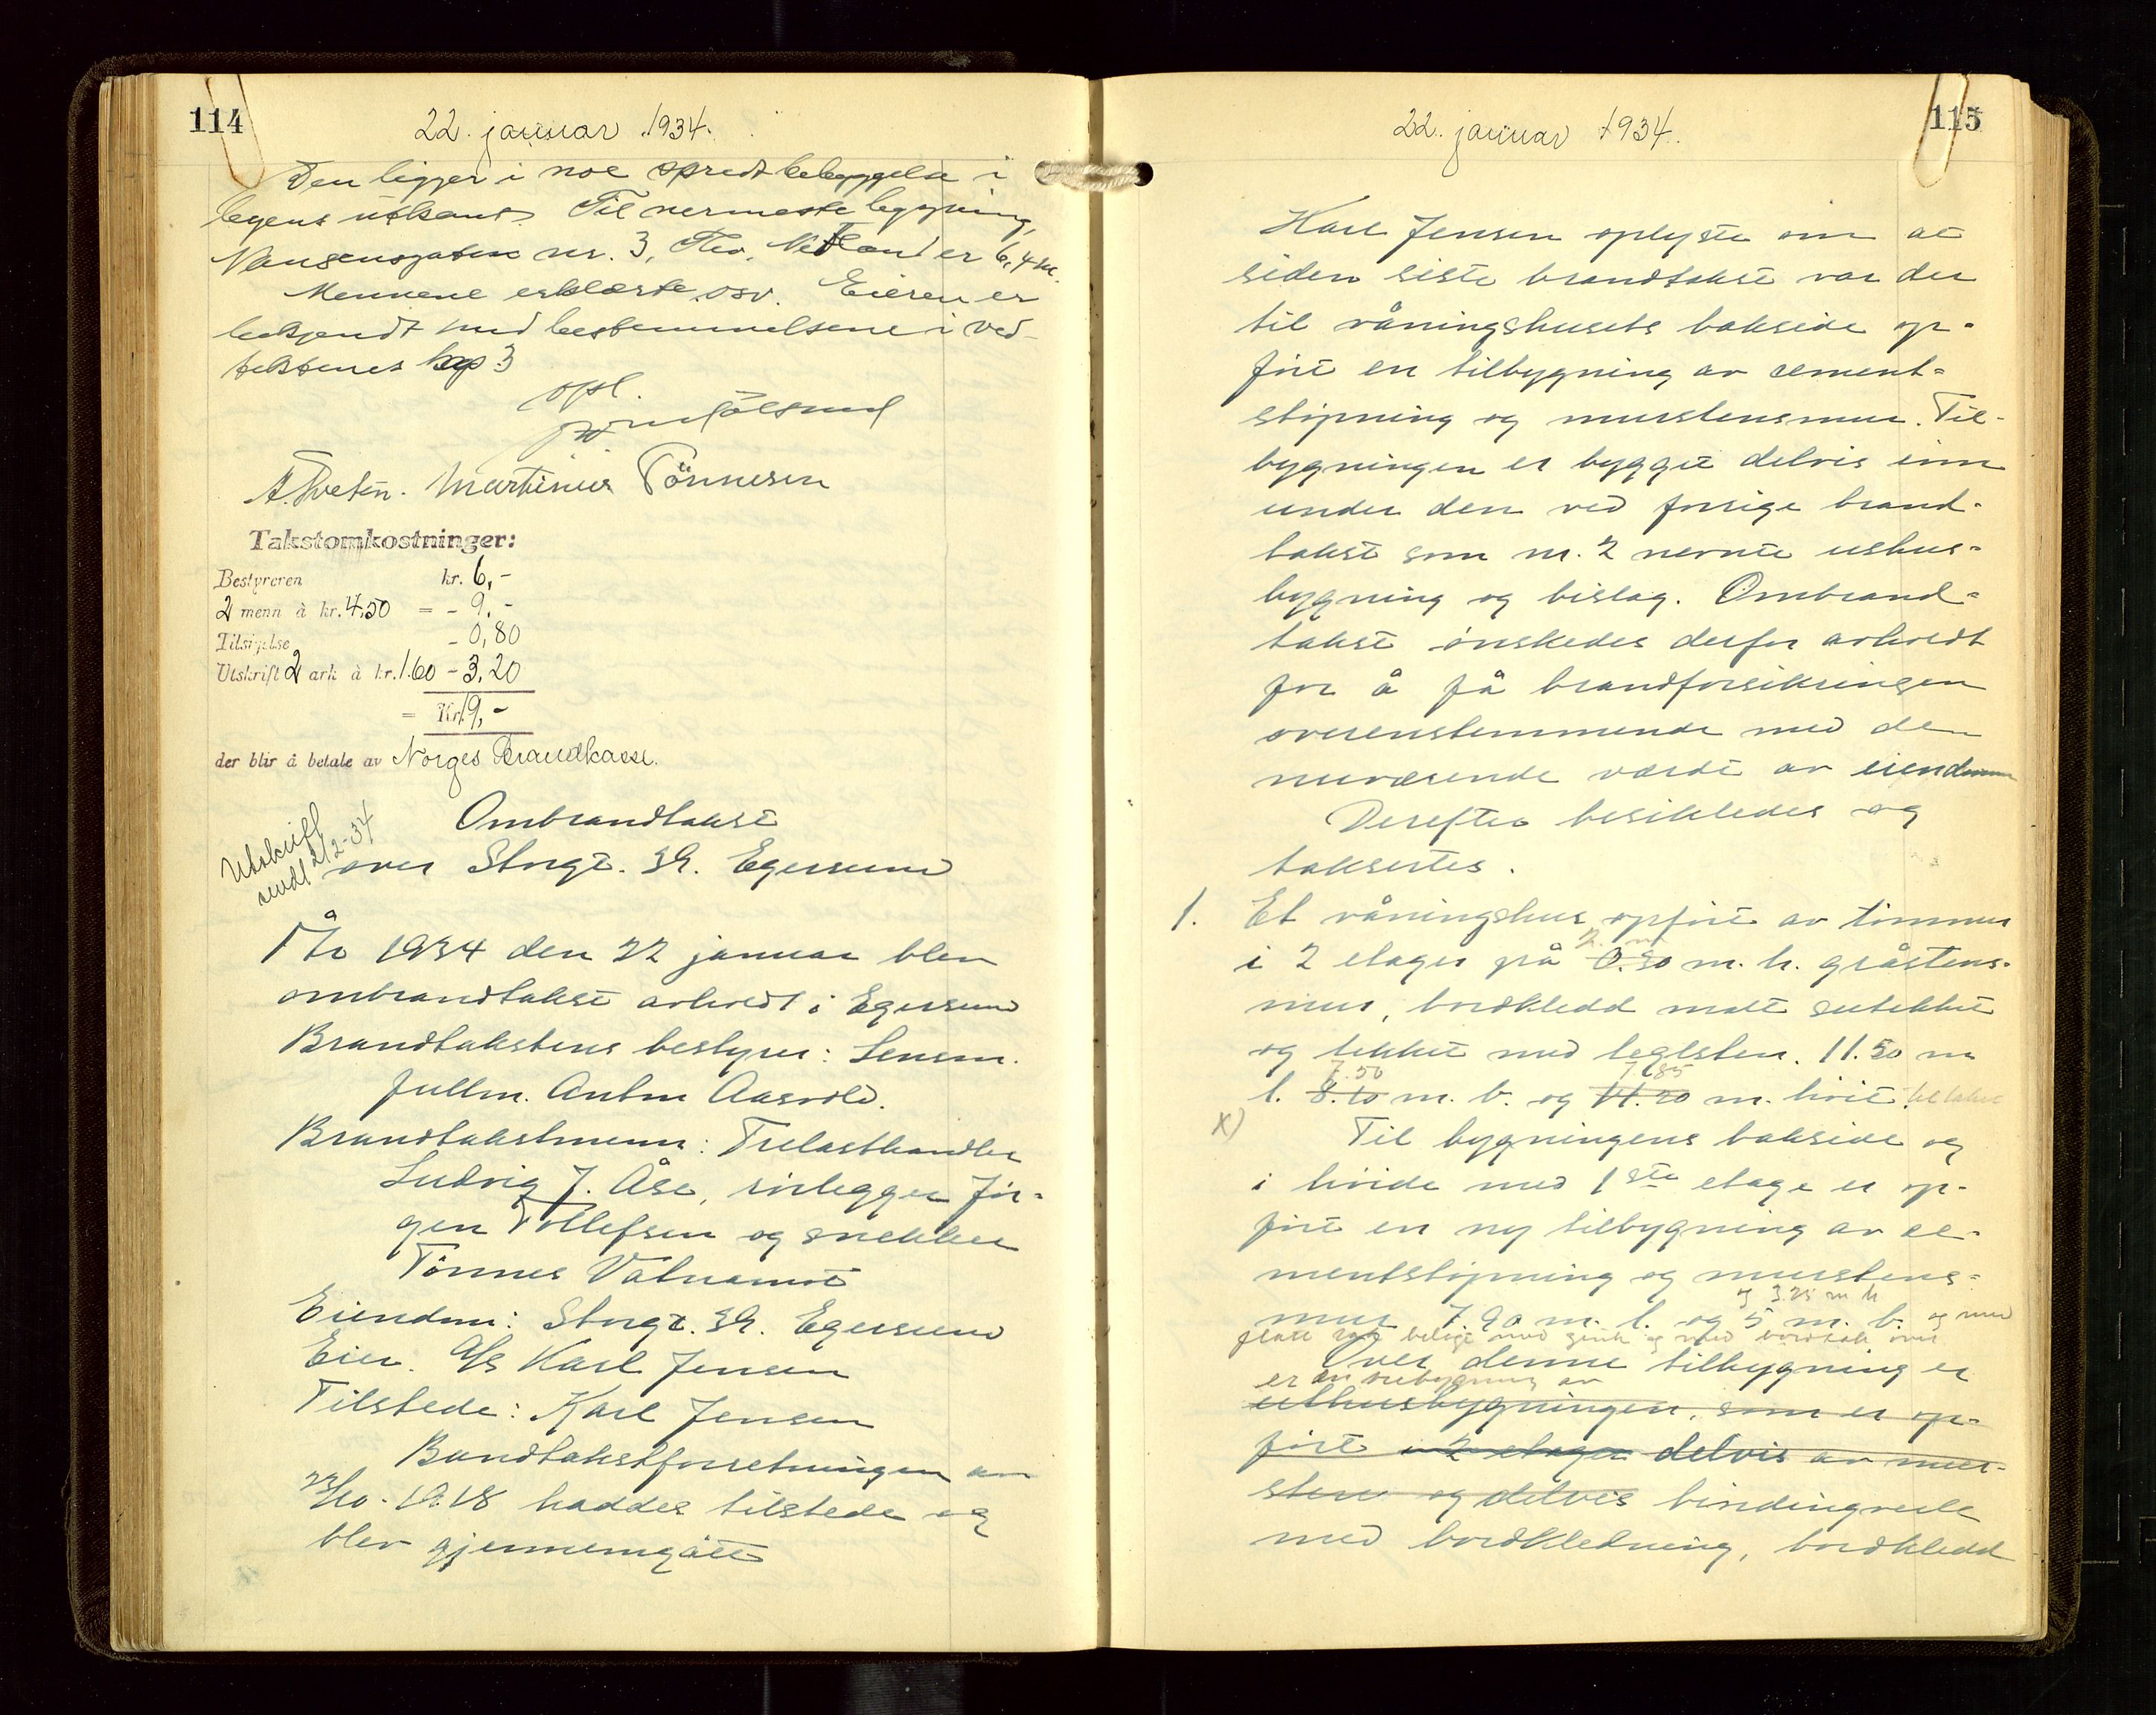 114
22. januar 1934.
Den ligger i noe spredt bebyggelse i
byens utkant. Til nermeste bygning,
Nansensgaten nr. 3, Theo. Netland er 6,4 m.
Mennene erklærte osv. Eieren er
bekjendt med bestemmelsene i ved-
tektenes kap 3
opl.
A. Tveten. Martinius Tönnesen
Takstomkostninger:
Bestyreren kr. 6,-
2 menn à kr. 4,50 = - 9,-
Tilsigelse - 0,80
Utskrift 2 ark à kr. 1.60 - 3,20
= Kr. 19,-
der blir å betale av Norges Brandkasse.
Utskrift
sendt 2/2-34
Ombrandtakst
over Storgt. 39. Egersund
År 1934 den 22 januar blev
ombrandtakst avholdt i Egersund
Brandtakstens bestyrer: Lensm.
fullm. Anton Aasvold.
Brandtakstmenn: Trelasthandler
Ludvig J. Åse, rørlegger Jør-
gen Tollefsen og snekker
Tönnes Vatnamot
Eiendom: Storgt. 39. Egersund
Eier. A/S Karl Jensen
Tilstede: Karl Jensen
Bandtakstforretningen av
22/10-1918 haddes tilstede og
blev gjennemgått
115
22. januar 1934.
Karl Jensen oplyste om at
siden siste brandtakst var der
til våningshusets bakside op-
ført en tilbygning av cement-
støpning og murstensmur. Til-
bygningen er bygget delvis inn
under den ved forrige brand-
takst som nr. 2 nevnte uthus-
bygning og bislag. Ombrand-
takst ønskedes derfor avholdt
for å få brandforsikringen
overenstemmende med den
nuværende værdi av eiendommen
Derefter besiktedes og
taksertes.
1. Et våningshus opført av tømmer
2. m
i 2 etager på 0.30 m. h. gråstens-
mur, bordkledd malt sutekket
og tekket med teglsten. 11.50 m
7.50 7.85
l. 8.10 m. b. og 11.20 m. höit
x) Til bygningens bakside og
i höide med 1ste etage er op-
ført en ny tilbygning av ce-
mentstøpning og murstens-
og 3.25 m h
mur 7.90 m. l. og 5 m. b. og med
flatt tak belagt med zink og med bordtak over
Over denne tilbygning er
er en overbygning av
uthusbygningen, som er op-
ført i 2 etager delvis av mur-
sten og delvis bindingverk
med bordkledning, bordkledd